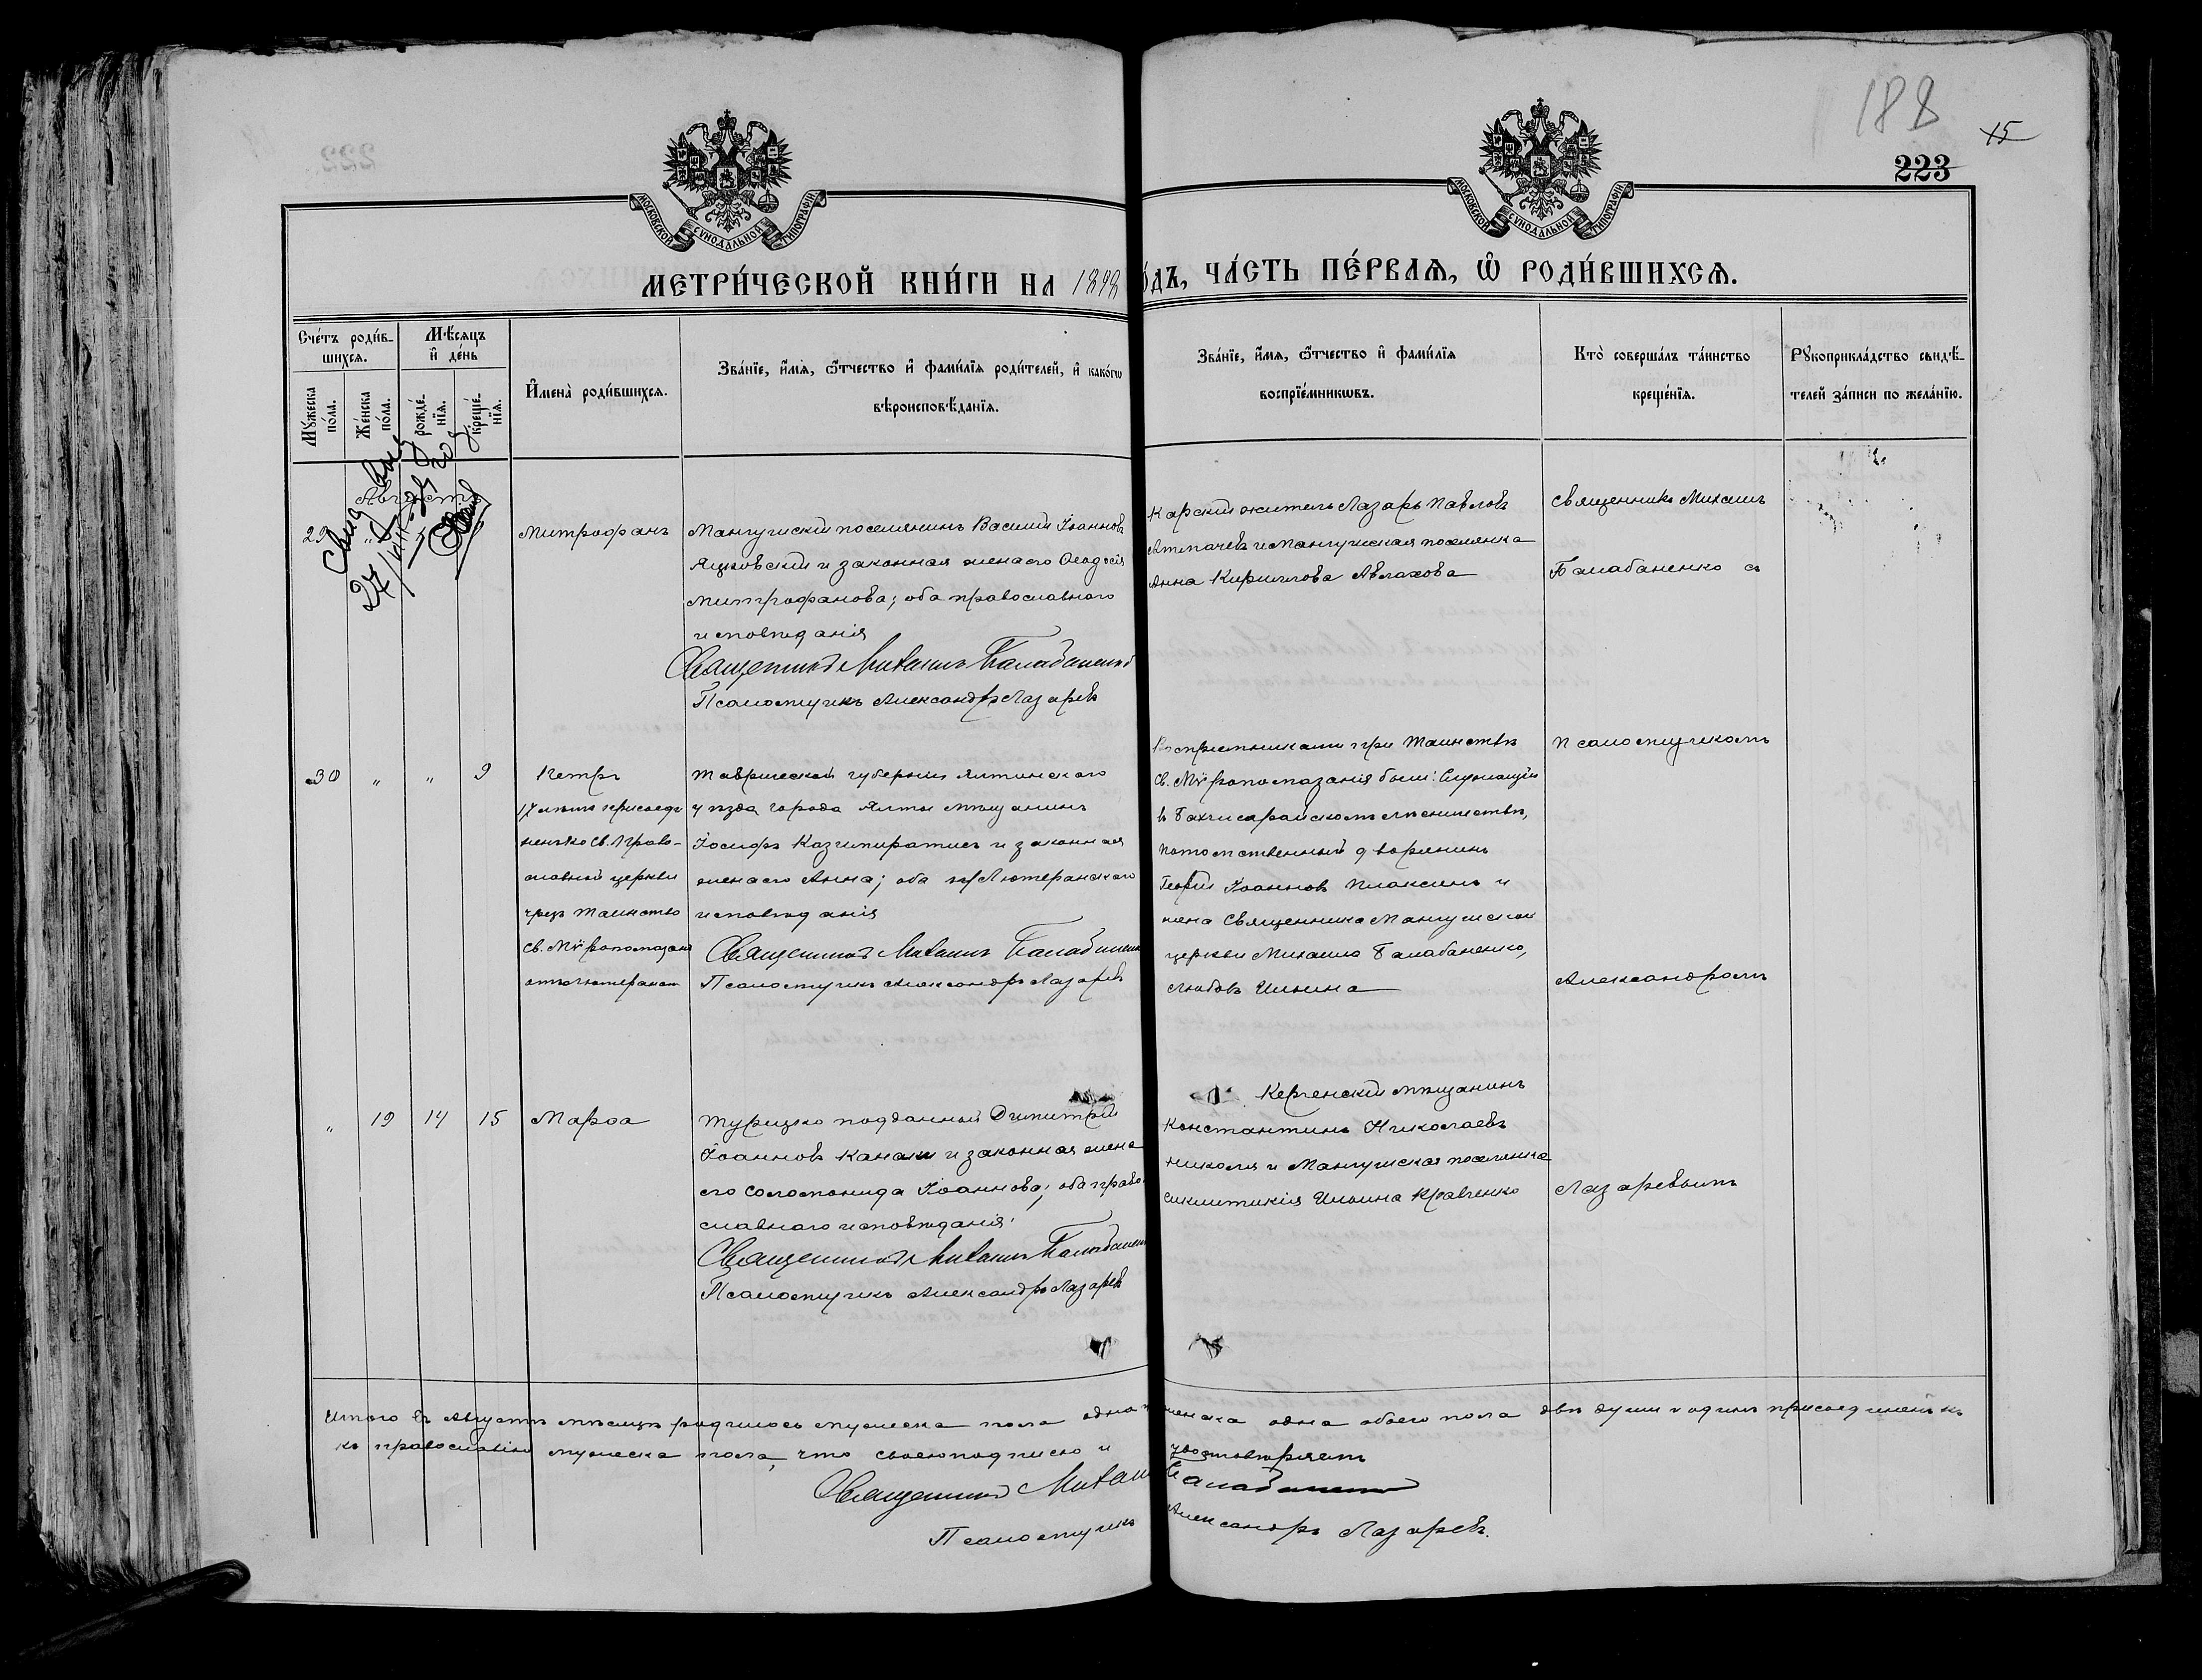 188
15
223
МОСКОВСКОЙ СѴНОДАЛЬНОЙ ТИПОГРАФІИ
МОСКОВСКОЙ СѴНОДАЛЬНОЙ ТИПОГРАФІИ
МЕТРИ́ЧЕСКОЙ КНИ́ГИ НА 1898
О́ДЪ, ЧА́СТЬ ПЕ́РВАѦ, Ѽ РОДИ́ВШИХСѦ.
Сче́тъ роди́в-
шихсѧ.
Мѣ́сѧцъ
и҆ де́нь
Мꙋ́жеска по́ла.
Же́нска по́ла.
рожде́-нїѧ.
креще́-нїѧ.
И҆мена̀ роди́вшихсѧ.
Зва́нїе, и҆́мѧ, ѻ҆́тчество и҆ фами́лїѧ роди́телей, и҆ како́гѡ
вѣроисповѣ́данїѧ.
Зва́нїе, и҆́мѧ, ѻ҆́тчество и҆ фами́лїѧ
воспрїе́мникѡвъ.
Кто̀ соверша́лъ та́инство
креще́нїѧ.
Рꙋкоприкла́дство свидѣ́-
телей за́писи по жела́нїю.
Августъ
29 "
Митрофанъ
Мангушскій поселянинъ Василій Іоанновъ
Яцковскій и законная жена его Ѳеодосія
Митрофанова; оба православнаго
исповѣданія
Священникъ Михаилъ Балабаненко
Псаломщикъ Александръ Лазаревъ
Карскій житель Лазарь Павловъ
и Мангушская поселянка
Анна Кириллова Авлахова
Священникъ Михаилъ
Балабаненко съ
30 " " 9
Петръ
17 лѣтъ присоеди
ненъ ко св. Право-
славной церкви
чрезъ Таинство
св. Мѵропомазанія
отъ лютеранст
Таврической губерніи Ялтинскаго
уѣзда города Ялты мѣщанинъ
Іосифъ и законная
жена его Анна; оба Лютеранскаго
исповѣданія
Священникъ Михаилъ Балабаненко
Псаломщикъ Александръ Лазаревъ
Воспріемниками при Таинствѣ
св. Мѵропомазанія были: Служащій
въ Бахчисарайскомъ лѣсничествѣ,
потомственный дворянинъ
Георгій Іоанновъ Плаксинъ и
жена Священника Мангушской
церкви Михаила Балабаненко,
Любовь Ильина
Псаломщикомъ
Александромъ
" 19 14 15
Марѳа
Турецко подданный Димитрій
Іоанновъ и законная жена
его Соломонида Іоаннова; оба право
славнаго исповѣданія.
Священникъ Михаилъ Балабаненко
Псаломщикъ Александръ Лазаревъ
Керченскій мѣщанинъ
Константинъ Николаевъ
Николя и Мангушская поселянка
Синклитикія Ильина Кравченко
Лазаревымъ
Итого въ Августѣ мѣсяцѣ родилось мужеска пола одна женска одна обоего пола двѣ души и одинъ присоединенъ къ
къ православію мужеска пола, что своею подписью и удостовѣряемъ
Священникъ Михаилъ Балабаненко
Псаломщикъ Александръ Лазаревъ.